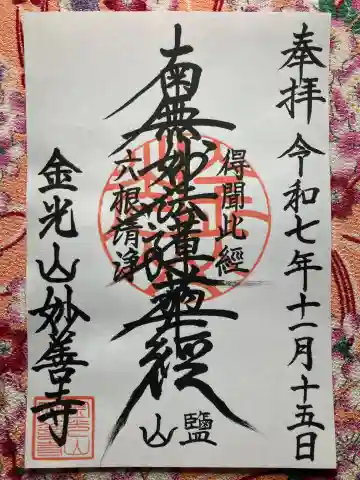 奉拝 令和七年十一月十五日
得聞此經
南無妙法蓮華經
六根清浄
山鹽
金光山妙善寺